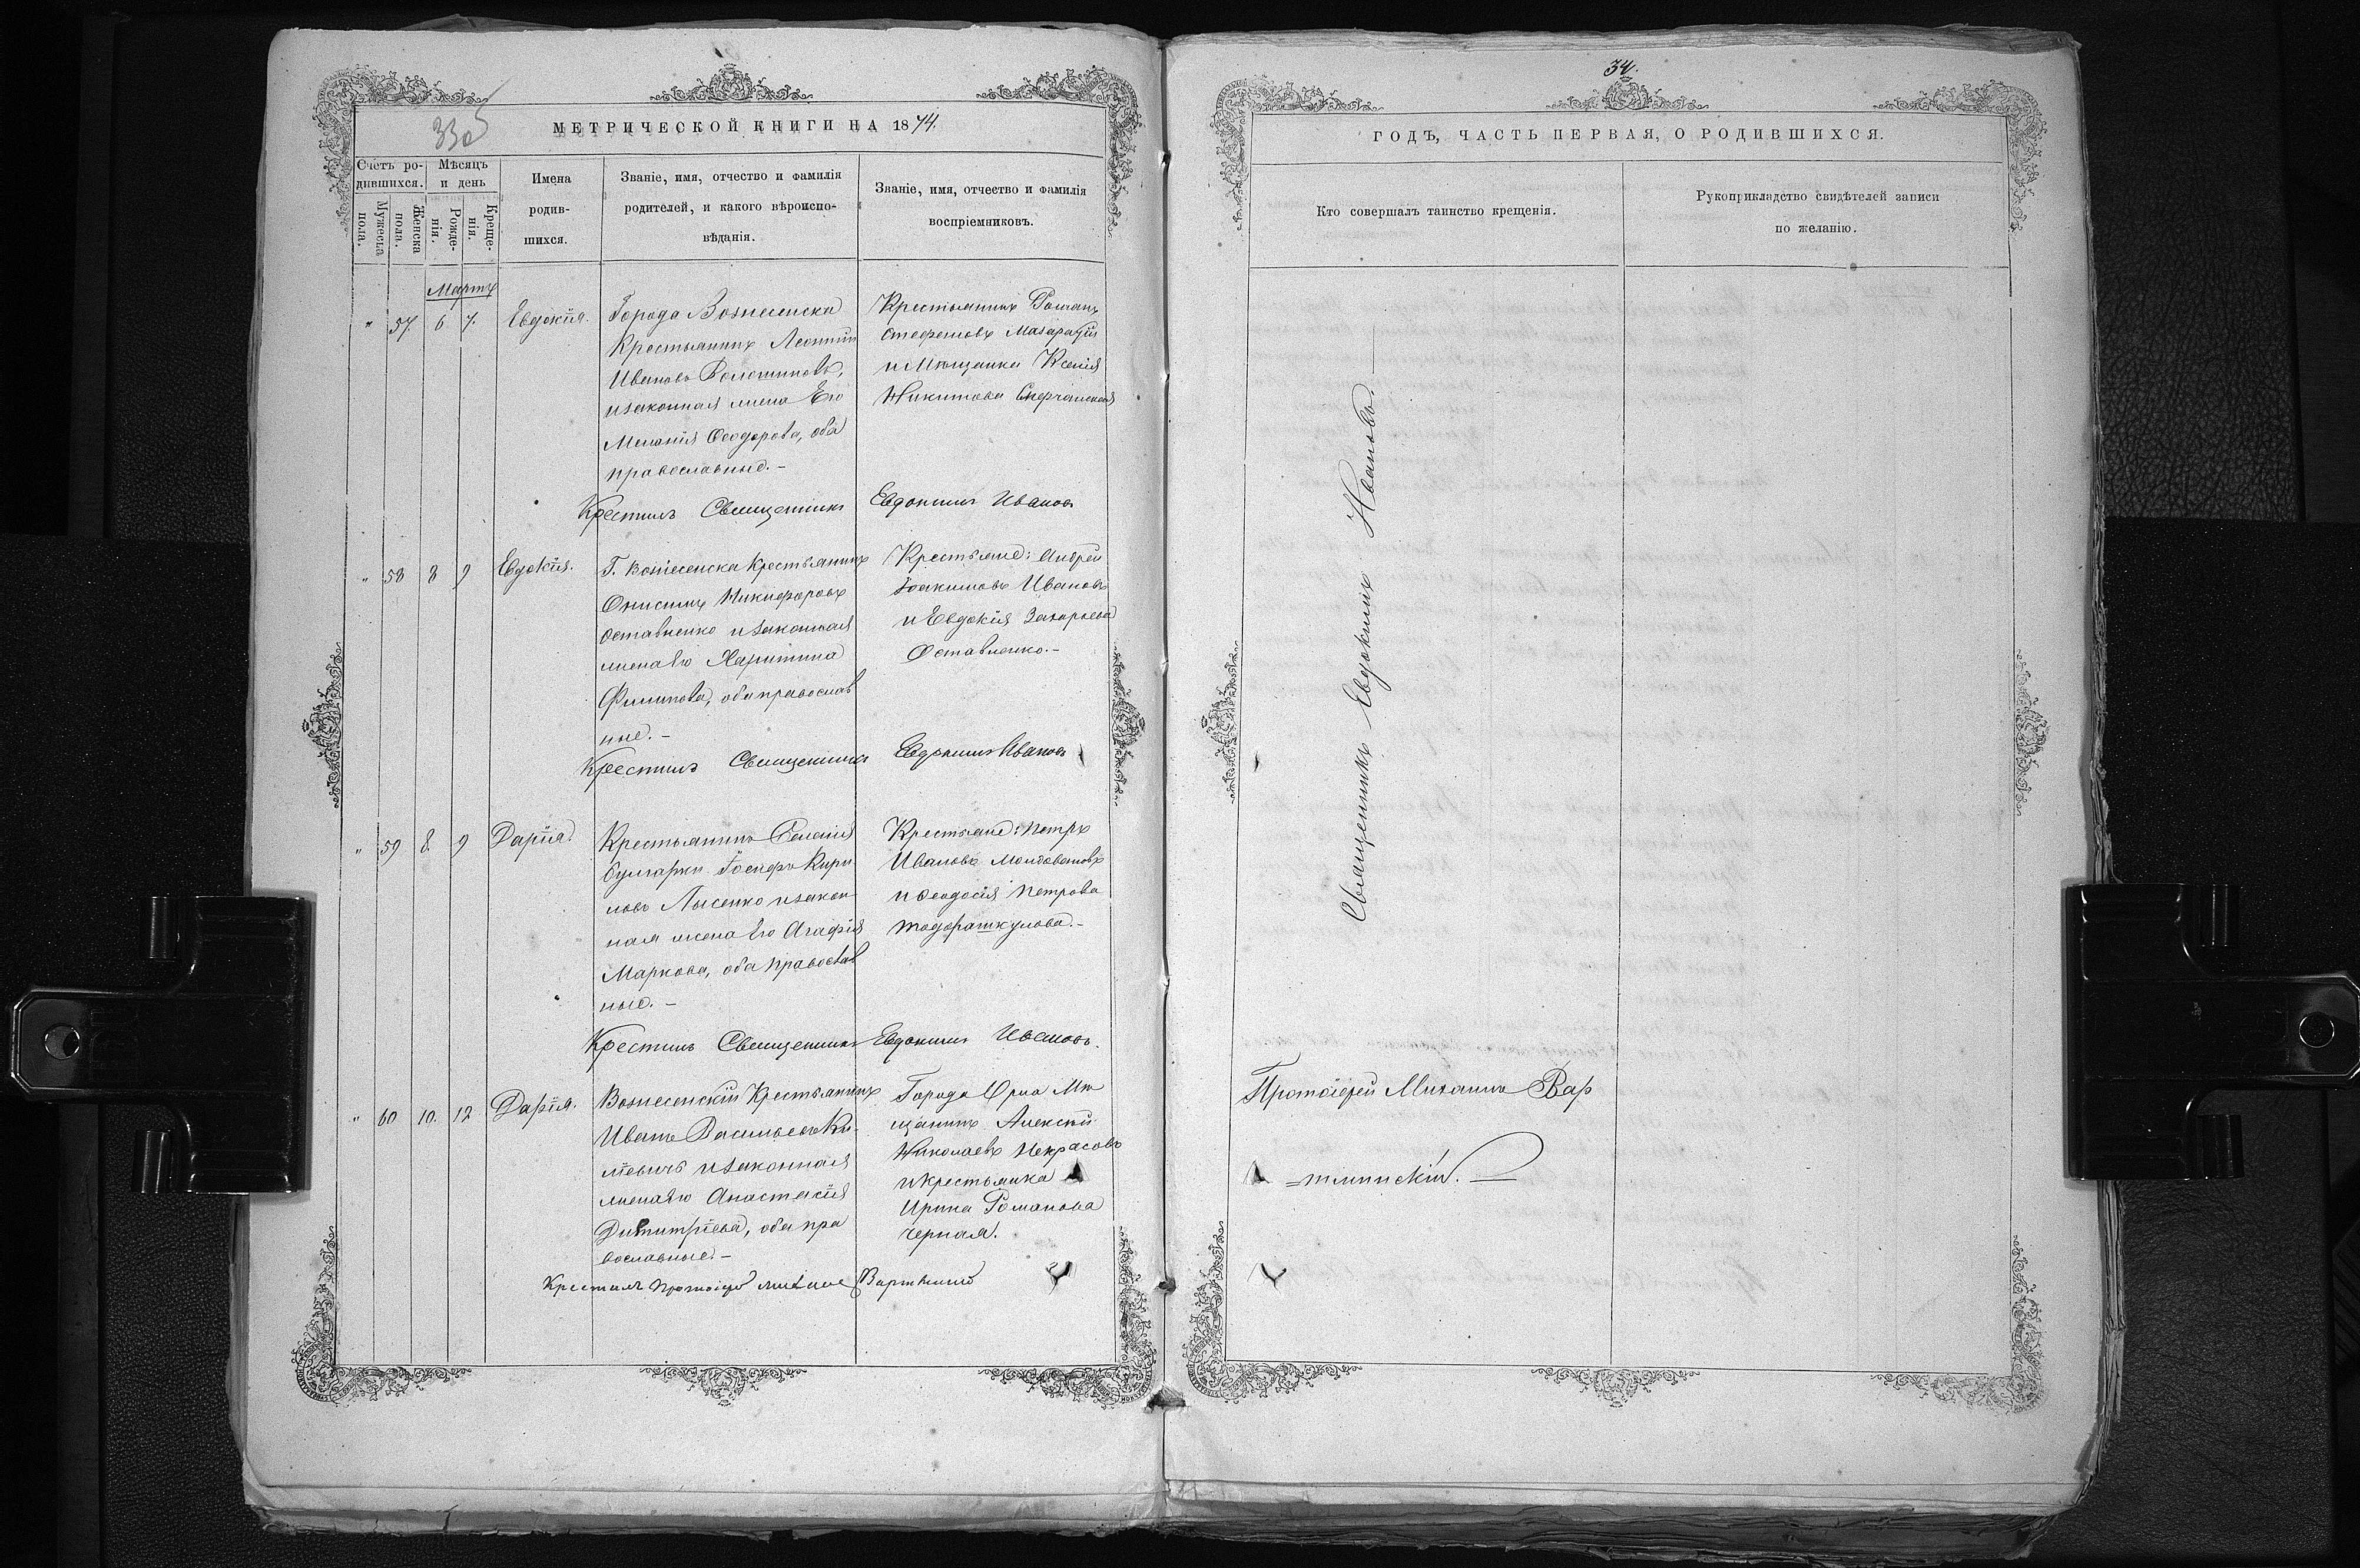 330
МЕТРИЧЕСКОЙ КНИГИ НА 1874.
Счетъ родившихся.
Мужеска пола.
Женска пола.
Мѣсяцъ и день
Рожденія.
Крещенія.
Имена
родив-
шихся.
Званіе, имя, отчество и фамилія
родителей, и какого вѣроиспо-
вѣданія.
Званіе, имя, отчество и фамилія
воспріемниковъ.
Мартъ
" 57. 6 7. Евдокія.
Города Вознесенска
Крестьянинъ Леонтій
Ивановъ Волошиновъ,
и законная жена Его
Меланія Ѳеодорова, оба
православные. -
Крестьянинъ Романъ
Стефановъ Мазаратій
и Мѣщанка Ксенія
Никитова
Крестилъ Священникъ Евдокимъ Ивановъ
" 58 8 9 Евдокія.
Г. Вознесенска Крестьянинъ
Онисимъ Никифоровъ
Оставненко и законная
жена Его Харитина
Филипова, оба православ
ные. -
Крестьяне: Андрей
Іоакимовъ Ивановъ
и Евдокія Захарьева
Оставненко. -
Крестилъ Священникъ Евдокимъ Ивановъ
" 59 8. 9 Дарія.
Крестьянинъ Селенія
Булгарки Іосифъ Кири
ловъ Лысенко и закон-
ная жена Его Агафія
Маркова, оба православ
ные. -
Крестьяне: Петръ
Ивановъ Молдовановъ
и Ѳеодосія Петрова
Тодораткулова. -
Крестилъ Священникъ Евдокимъ Ивановъ.
" 60 10. 12 Дарія.
Вознесенскій Крестьянинъ
Иванъ Васильевъ Ки-
и законная
жена Его Анастасія
Димитріева, оба пра
вославные. -
Города Орла Мѣ
щанинъ Алексѣй
Николаевъ Некрасовъ
и Крестьянка
Ирина Романова
Черная.
Крестилъ Протоіерей Михаилъ Вартминскій
34.
ГОДЪ, ЧАСТЬ ПЕРВАЯ, О РОДИВШИХСЯ.
Кто совершалъ таинство крещенія.
Рукоприкладство свидѣтелей записи
по желанію.
Священникъ Евдокимъ Ивановъ. -
Протоіерей Михаилъ Вар
=тминскій. -